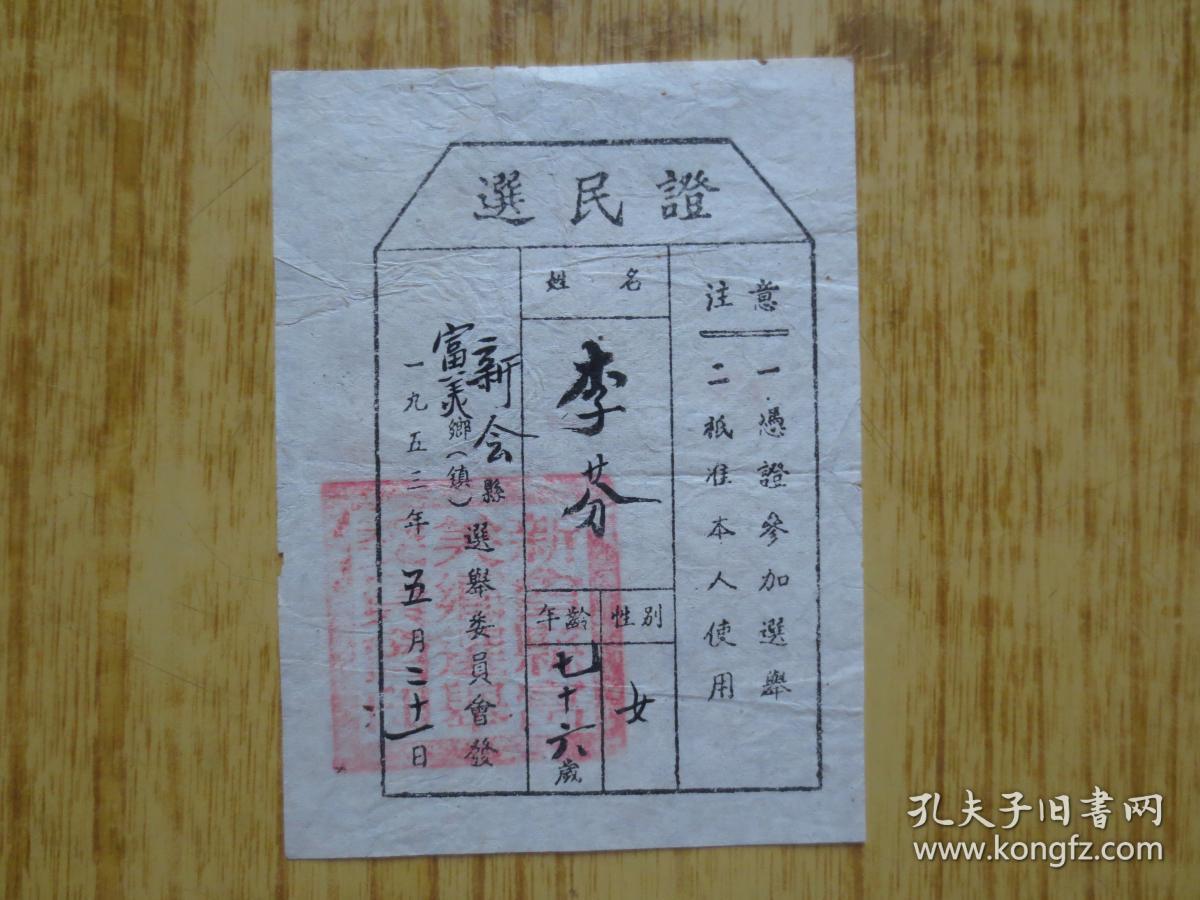 選民證
注意
一憑證參加選舉
二祇准本人使用
姓名
李芬
性別
女
年齡
七十六歲
新会縣
富美鄉（鎮）
選舉委員會發
一九五三年五月二十一日
孔夫子旧书网
www.kongfz.com